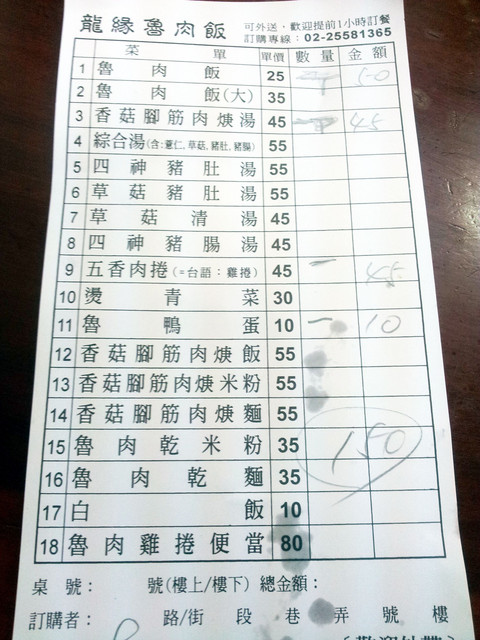 龍緣魯肉飯 可外送，歡迎提前1小時訂餐
訂購專線：02-25581365
菜單 單價 數量 金額
1 魯肉飯 25 50
2 魯肉飯(大) 35
3 香菇腳筋肉焿湯 45 一 45
4 綜合湯(含:薏仁,草菇,豬肚,豬腸) 55
5 四神豬肚湯 55
6 草菇豬肚湯 55
7 草菇清湯 45
8 四神豬腸湯 45
9 五香肉捲(=台語：雞捲) 45 一 45
10 燙青菜 30
11 魯鴨蛋 10 一 10
12 香菇腳筋肉焿飯 55
13 香菇腳筋肉焿米粉 55
14 香菇腳筋肉焿麵 55
15 魯肉乾米粉 35
150
16 魯肉乾麵 35
17 白飯 10
18 魯肉雞捲便當 80
桌號： 號(樓上/樓下) 總金額：
訂購者： 路/街 段 巷 弄 號 樓